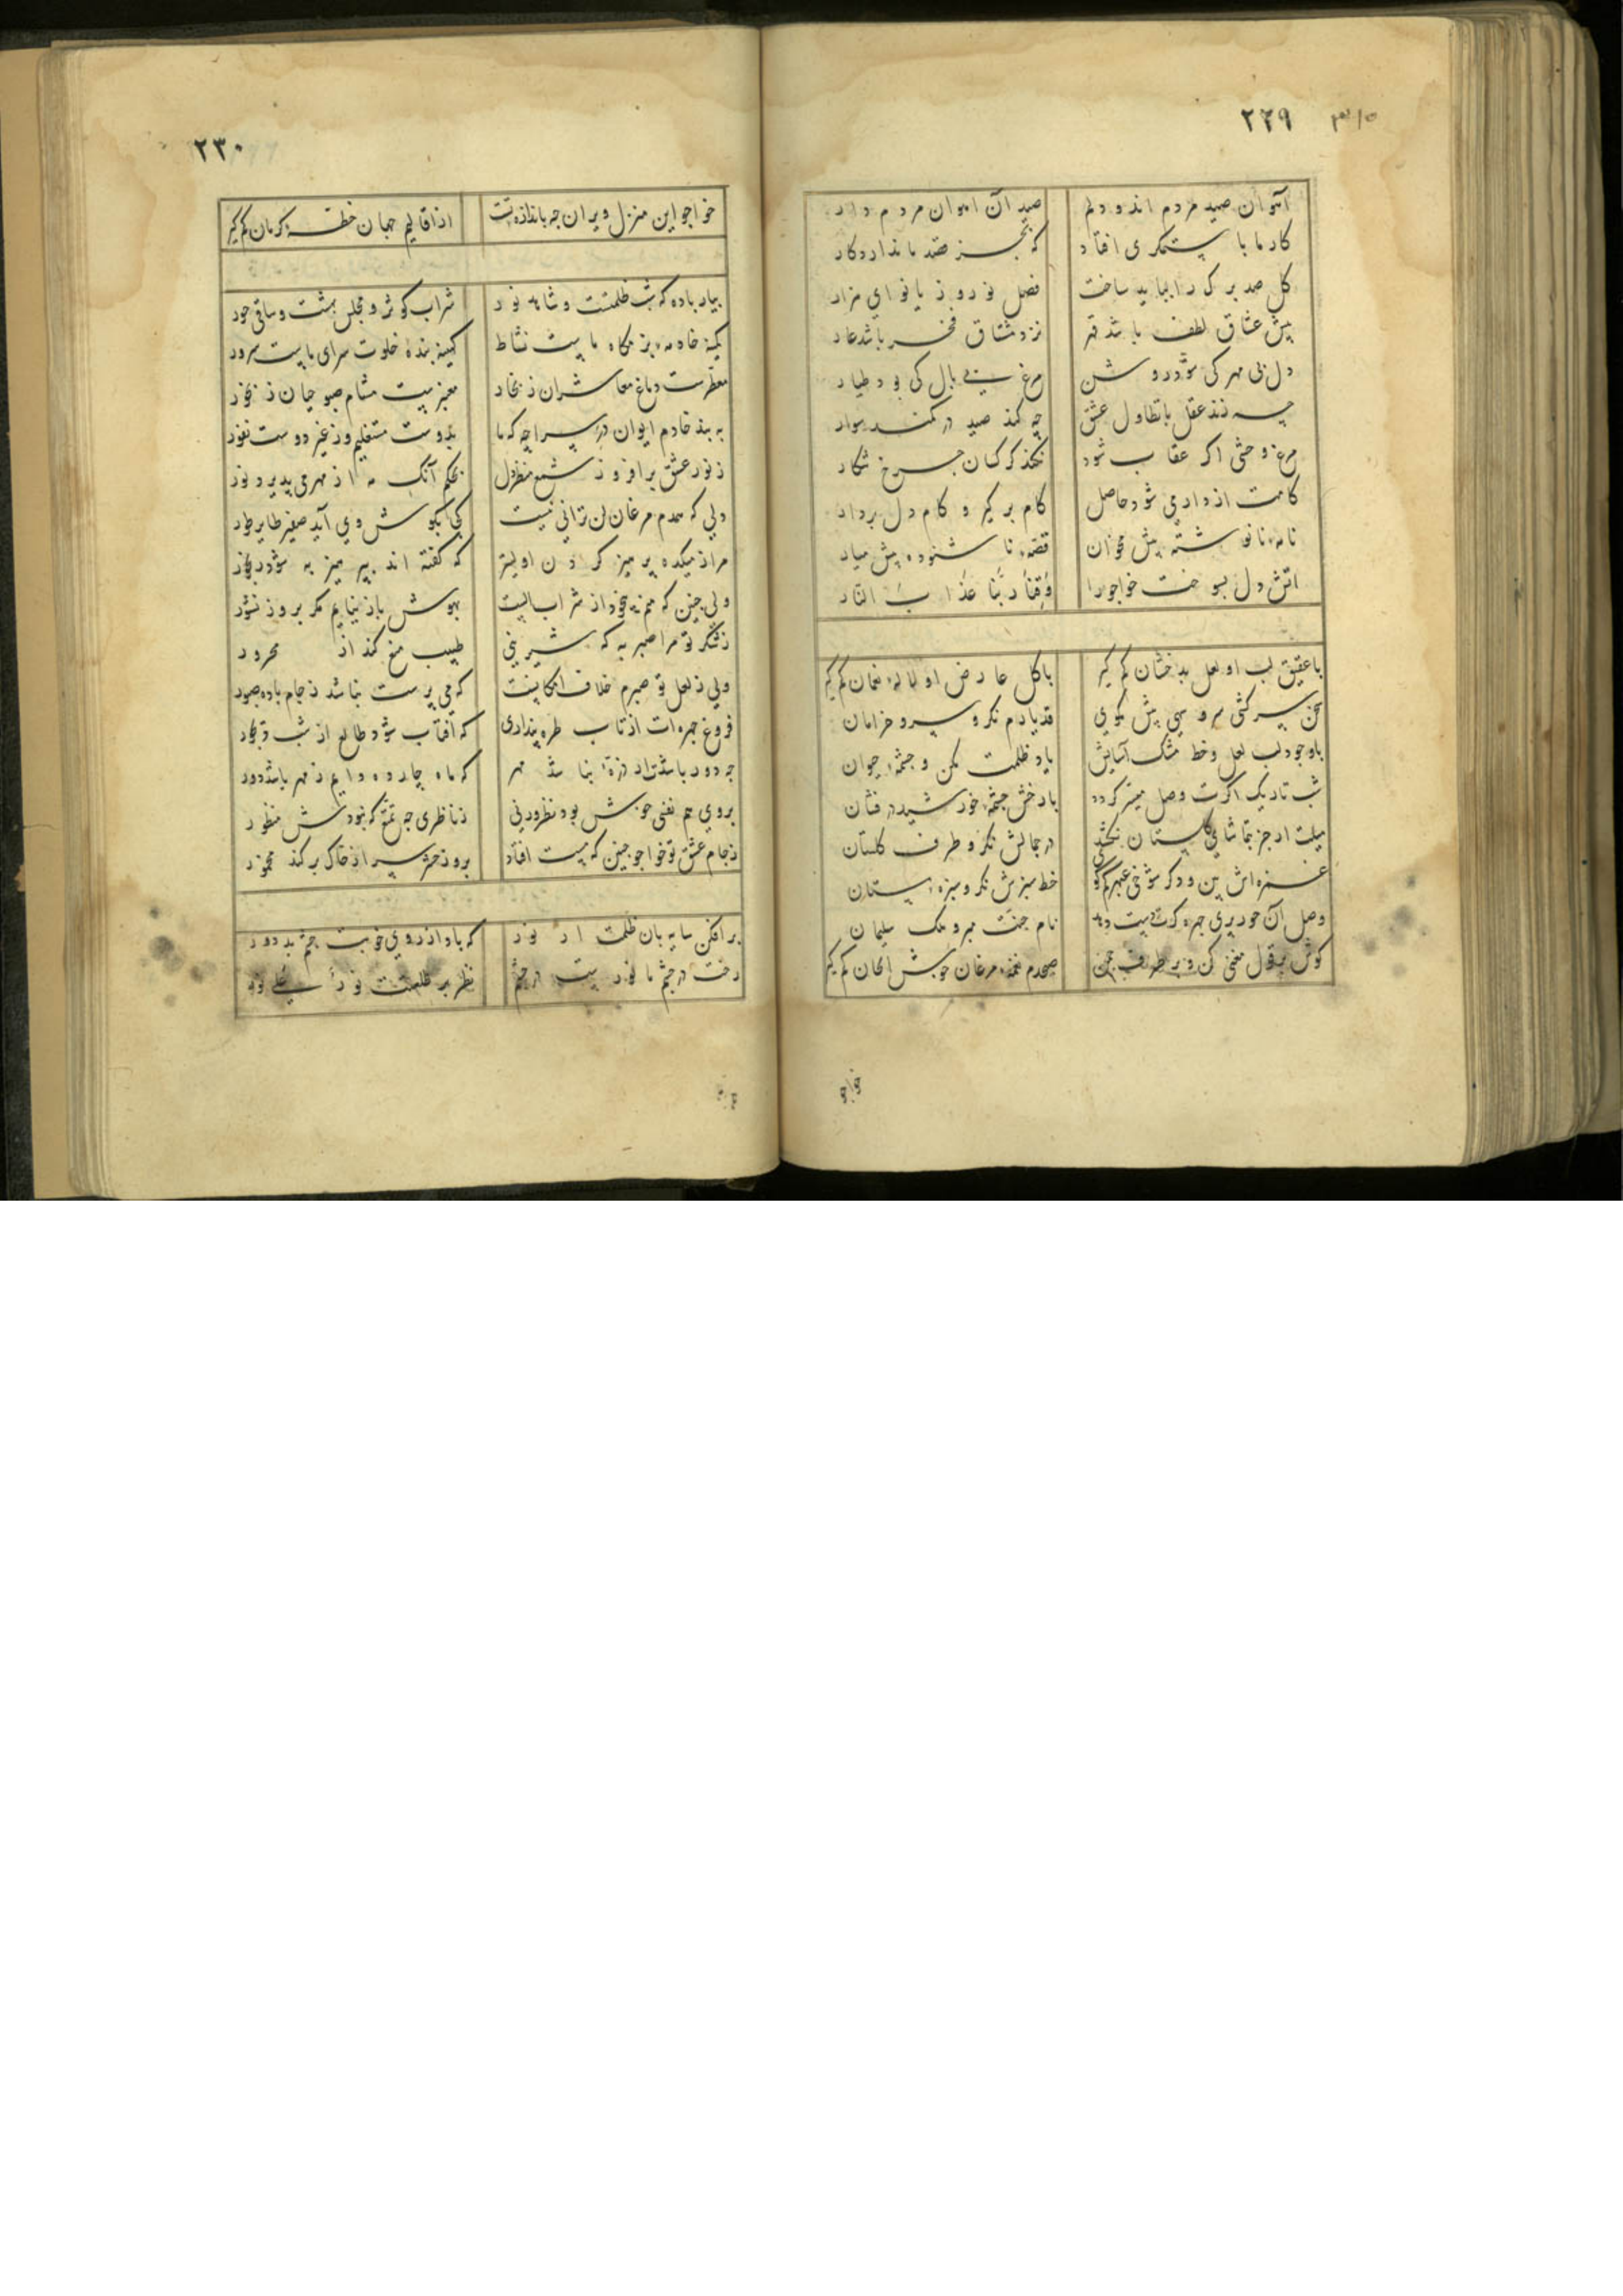 ۳۱۵ ۲۲۹
آهوان صید مردم اند و دلم صید آن آهوان مردم دار
کار ما با ستمکری افتاد که بجز قصد ما ندارد کار
کل صد برک را بباید ساخت فصل نوروز با نوای هزار
پیش عشاق لطف باشد قهر نزد مشتاق فخر باشد عار
دل بی مهر کی شود روشن مرغ بی بال کی بود طیار
چه زند عقل با تطاول عشق چه کند صید در کمند سوار
مرغ وحشی اکر عقاب شود نکند کرکسان چرخ شکار
کامت از دار می شود حاصل کام بر کیر و کام دل بردار
نامه نانوشته پیش مخوان قصه ناشنوده پیش میار
اتش دل بسوخت خواجو را وقنا ربنا عذاب النار
با عقیق لب او لعل بدخشان کم کیر با کل عارض او لاله نعمان کم کیر
سخن سرکشی سرو سهی پیش مکوی قد یارم نکر و سرو خرامان
با وجود لب لعل و خط مشک آسایش یاد ظلمت مکن و چشمه حیوان
شب تاریک اکرت وصل میسر کردد با رخش چشمه خورشید درفشان
میلت ار جز بتماشای کلستان نکشد در جمالش نکر و طرف کلستان
غمزه اش بین و دکر شوخی عبهر کم کوی خط سبزش نکر و سبزه بستان
وصل آن حور پری چهره کرت دست دهد نام جنت مبر و ملک سلیمان
کوش بر قول مغنی کن و بر طرف چمن صبحدم نغمه مرغان خوش الحان کم کیر
خواجو
۲۳۰
خواجو این منزل ویران چو باندازه تست از اقالیم جهان خطه کرمان کم کیر
بیار باده که شب ظلمتست و شاهد نور شراب کوثر و مجلس بهشت و ساقی حور
کمینه خادمه بزمکاه ماست نشاط کمینه بنده خلوت سرای ماست سرور
معطرست دماغ معاشران ز بخار معنبرست مشام صبوحیان ز بخور
به بند خادم ایوان در سراچه که ما بدوست مشتغلیم و ز غیر دوست نفور
ز نور عشق برافروز شمع منظر دل بحکم آنک مه از مهر می پذیرد نور
دلی که همدم مرغان لن ترانی نیست کجا بکوش وی آید صفیر طایر طور
مرا ز میکده پرهیز کردن اولیتر که کفته اند بپرهیز به شود رنجور
ولی چنین که منم بیخود از شراب الست بهوش باز نیایم مکر بروز نشور
ز شکر تو مرا صبر به که شیرینی طبیب منع کند از محرور
ولی ز لعل تو صبرم خلاف امکانست که می پرست نباشد ز جام باده صبور
فروغ چهره ات از تاب طره پنداری که افتاب شود طالع از شب دیجور
چه دور باشد ار ذره نباشد مهر که ماه چارده دایم ز مهر باشد دور
بروی هم نفسی خوش بود نظر ورنی ز ناظری چه تمتع که نبودش منظور
ز جام عشق تو خواجو چنین که مست افتاد بروز حشر سر از خاک بر کند مخمور
بر افکن سایه بان ظلمت از نور که باد از روی خوبت چشم بد دور
رخت در چشم ما نورست در چشم نظر بر طلعتت نور علی نور